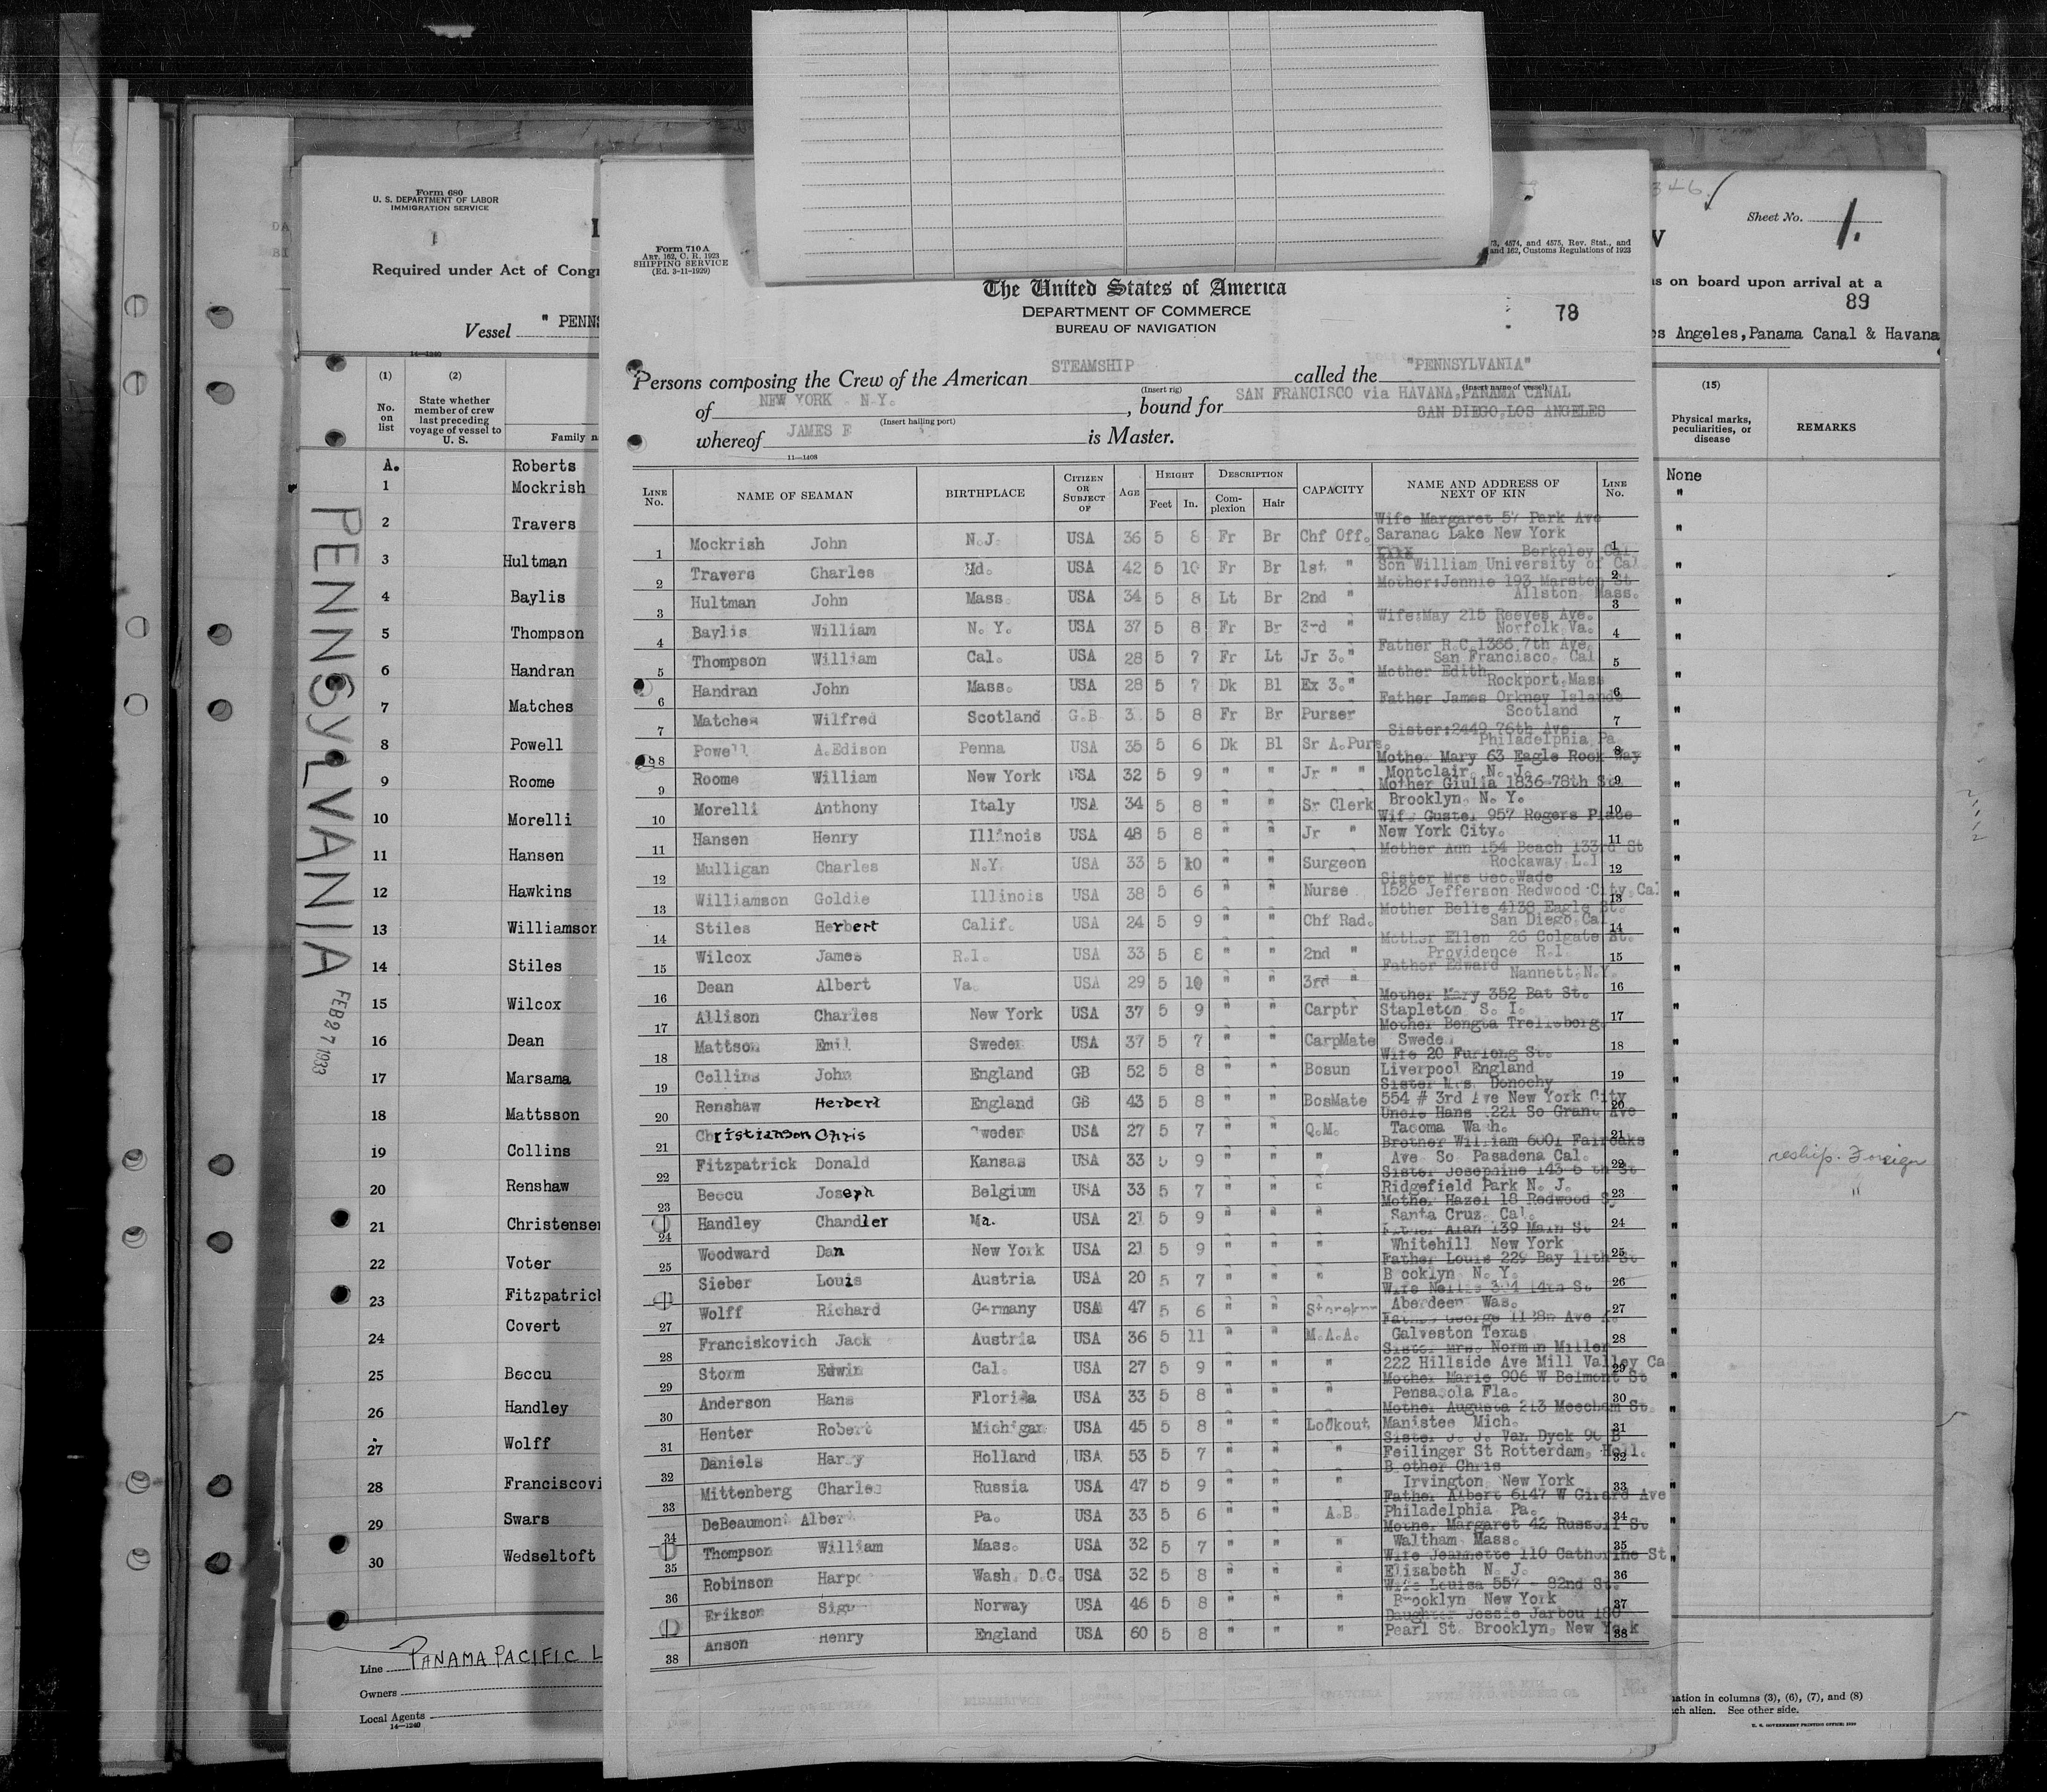 Form 680
U. S. DEPARTMENT OF LABOR
IMMIGRATION SERVICE
Required under Act of Cong
Vessel " PENNS
14—1240
(1) (2)
No. on list
State whether member of crew last preceding voyage of vessel to U. S.
Family n
A. Roberts
1 Mockrish
2 Travers
3 Hultman
4 Baylis
5 Thompson
6 Handran
7 Matches
8 Powell
9 Roome
10 Morelli
11 Hansen
12 Hawkins
13 Williamson
14 Stiles
15 Wilcox
16 Dean
17 Marsama
18 Mattsson
19 Collins
20 Renshaw
21 Christensen
22 Voter
23 Fitzpatrick
24 Covert
25 Beccu
26 Handley
27 Wolff
28 Franciscovi
29 Swars
30 Wedseltoft
PENNSyLVANIA
FEB 27 1933
Line PANAMA PACIFIC L
Owners
Local Agents
14—1240
Form 710 A
ART. 162, C. R. 1923
SHIPPING SERVICE
(Ed. 3-11-1929)
3, 4574, and 4575, Rev. Stat., and
and 162, Customs Regulations of 1923
The United States of America
DEPARTMENT OF COMMERCE
BUREAU OF NAVIGATION
78
Persons composing the Crew of the American STEAMSHIP called the "PENNSYLVANIA"
(Insert rig) (Insert name of vessel)
of NEW YORK N.Y. , bound for SAN FRANCISCO via HAVANA, PANAMA CANAL
(Insert hailing port) SAN DIEGO, LOS ANGELES
whereof JAMES E is Master.
11—1408
LINE No. NAME OF SEAMAN BIRTHPLACE CITIZEN OR SUBJECT OF AGE HEIGHT Feet In. DESCRIPTION Complexion Hair CAPACITY NAME AND ADDRESS OF NEXT OF KIN LINE No.
Wife Margaret 57 Park Ave
1 Mockrish John N.J. USA 36 5 8 Fr Br Chf Off. Saranac Lake New York 1
Berkeley Cal.
2 Travers Charles Md. USA 42 5 10 Fr Br 1st. " Son William University of Cal 2
Mother:Jennie 193 Marston St
3 Hultman John Mass. USA 34 5 8 Lt Br 2nd " Allston Mass. 3
Wife:May 215 Reeves Ave.
4 Baylis William N. Y. USA 37 5 8 Fr Br 3rd " Norfolk Va. 4
Father R.C.1366 7th Ave.
5 Thompson William Cal. USA 28 5 7 Fr Lt Jr 3." San Francisco, Cal 5
Mother Edith
6 Handran John Mass. USA 28 5 7 Dk Bl Ex 3." Rockport,Mass 6
Father James Orkney Islands
7 Matches Wilfred Scotland G.B 3 5 8 Fr Br Purser Scotland 7
Sister:2449 76th Ave.
8 Powell A.Edison Penna USA 35 5 6 Dk Bl Sr A.Purs. Philadelphia,Pa 8
Mother Mary 63 Eagle Rock Way
9 Roome William New York USA 32 5 9 " " Jr " " Montclair, N. J. 9
Mother Giulia 1836-78th St
10 Morelli Anthony Italy USA 34 5 8 " " Sr Clerk Brooklyn, N. Y. 10
Wife Gustel 957 Rogers Place
11 Hansen Henry Illinois USA 48 5 8 " " Jr " New York City. 11
Mother Ann 154 Beach 133rd St
12 Mulligan Charles N.Y. USA 33 5 10 " " Surgeon Rockaway,L.I 12
Sister Mrs Geo.Wade
13 Williamson Goldie Illinois USA 38 5 6 " " Nurse 1526 Jefferson Redwood City,Cal 13
Mother Belle 4138 Eagle St.
14 Stiles Herbert Calif. USA 24 5 9 " " Chf Rad. San Diego,Cal 14
Mother Ellen 26 Colgate St.
15 Wilcox James R.I. USA 33 5 8 " " 2nd " Providence R.I. 15
Father Edward
16 Dean Albert Va. USA 29 5 10 " " 3rd " Nannett,N.Y. 16
Mother Mary 352 Bat St.
17 Allison Charles New York USA 37 5 9 " " Carptr Stapleton S. I. 17
Mother Bengta Trelleborg
18 Mattson Emil Sweden USA 37 5 7 " " CarpMate Sweden 18
Wife 20 Furlong St.
19 Collins John England GB 52 5 8 " " Bosun Liverpool England 19
Sister Mrs. Donochy
20 Renshaw Herbert England GB 43 5 8 " " BosMate 554 # 3rd Ave New York City 20
Uncle Hans 1221 So Grant Ave
21 Christianson Chris Sweden USA 27 5 7 " " Q.M. Tacoma Wash. 21
Brother William 6001 Fairoaks
22 Fitzpatrick Donald Kansas USA 33 5 9 " " " Ave So Pasadena Cal. 22
Sister Josephine 143 6 th St
23 Beccu Joseph Belgium USA 33 5 7 " " " Ridgefield Park N. J. 23
Mother Hazel 18 Redwood Sy
24 Handley Chandler Ma. USA 21 5 9 " " " Santa Cruz Cal. 24
Alan 139 Main St
25 Woodward Dan New York USA 21 5 9 " " " Whitehill New York 25
Father Louis 229 Bay 11th St
26 Sieber Louis Austria USA 20 5 7 " " " Brooklyn N. Y. 26
Wife Nellie 304 14th St
27 Wolff Richard Germany USA 47 5 6 " " Storekpr Aberdeen Was. 27
Father George Ave K.
28 Franciskovich Jack Austria USA 36 5 11 " " M.A.A. Galveston Texas 28
Sister Mrs. Norman Miller
29 Storm Edwin Cal. USA 27 5 9 " " " 222 Hillside Ave Mill Valley Ca 29
Mother Marie 906 W Belmont St
30 Anderson Hans Florida USA 33 5 8 " " " Pensacola Fla. 30
Mother Augusta 213 Meecham St.
31 Henter Robert Michigan USA 45 5 8 " " Lookout Manistee Mich. 31
Sister J. J. Van Dyck 90 B
32 Daniels Harry Holland USA 53 5 7 " " " Feilinger St Rotterdam, Holl. 32
Brother Chris
33 Mittenberg Charles Russia USA 47 5 9 " " " Irvington New York 33
Father Albert 6147 W Girard Ave
34 DeBeaumont Albert Pa. USA 33 5 6 " " A.B. Philadelphia Pa. 34
Mother Margaret 42 Russell St
35 Thompson William Mass. USA 32 5 7 " " " Waltham Mass. 35
Wife Jeannette 110 Catherine St
36 Robinson Harpe Wash. D.C. USA 32 5 8 " " " Elizabeth N. J. 36
Wife Louisa 557 - 82nd St.
37 Erikson Sigu Norway USA 46 5 8 " " " Brooklyn New York 37
Daughter Jessie Jarbou 180
38 Anson Henry England USA 60 5 8 " " " Pearl St. Brooklyn, New York 38
346
Sheet No. 1.
W
s on board upon arrival at a
89
os Angeles,Panama Canal & Havana
(15)
Physical marks, peculiarities, or disease
REMARKS
None
reship. Foreign
"
ation in columns (3), (6), (7), and (8)
ch alien. See other side.
U. S. GOVERNMENT PRINTING OFFICE: 1930